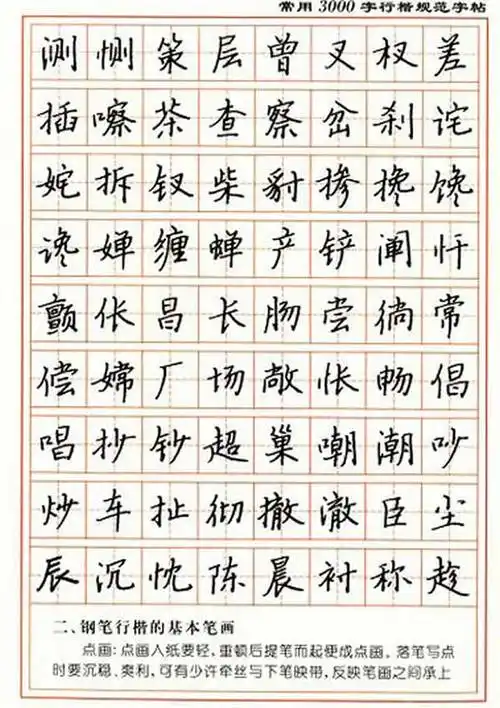 常用3000字行楷规范字帖
测恻策层曾叉杈差
插嚓茶查察岔刹诧
姹拆钗柴豺掺搀馋
谗婵缠蝉产铲阐忏
颤伥昌长肠尝徜常
偿嫦厂场敞怅畅倡
唱抄钞超巢嘲潮吵
炒车扯彻撤澈臣尘
辰沉忱陈晨衬称趁
二、钢笔行楷的基本笔画
点画:点画入纸要轻,重顿后提笔而起便成点画。落笔写点
时要沉稳、爽利,可有少许牵丝与下笔映带,反映笔画之间承上